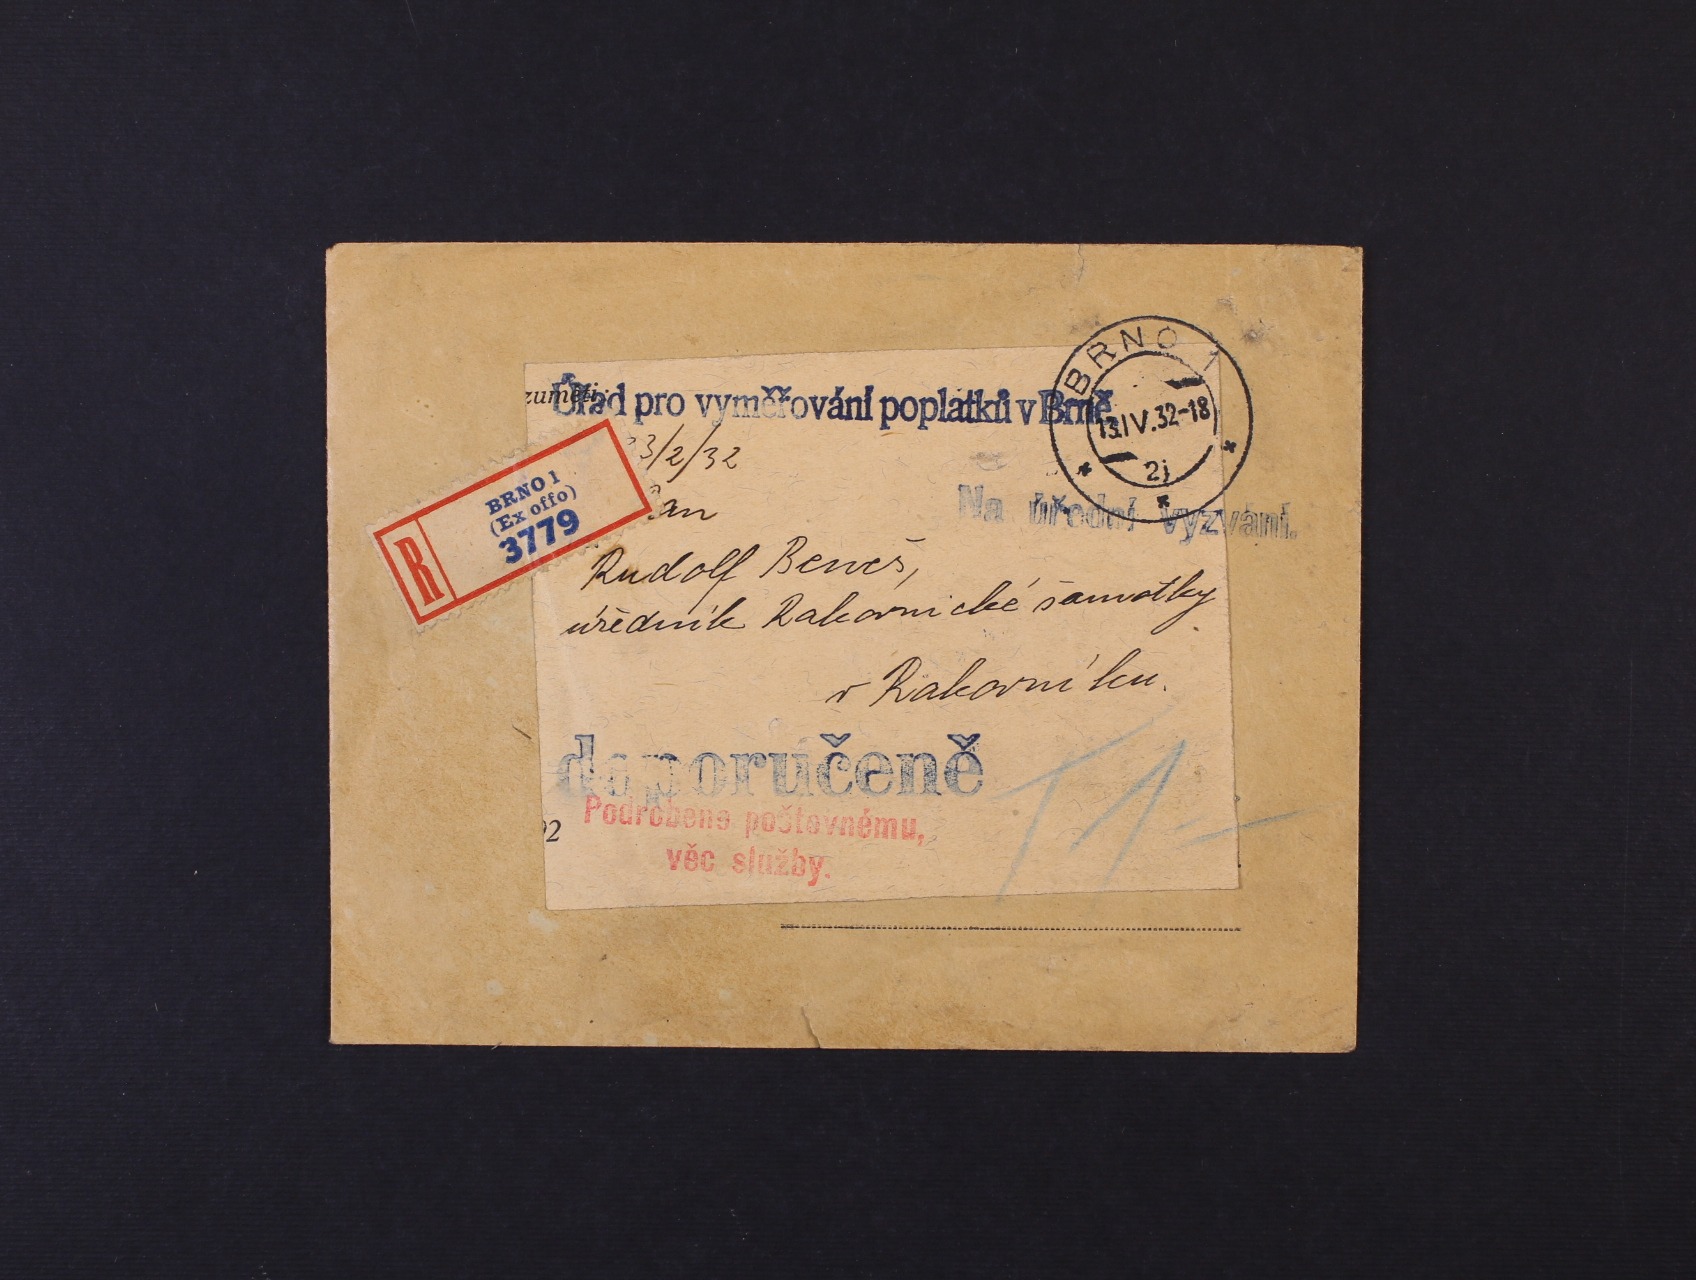 Úřad pro vyměřování poplatků v Brně
BRNO 1
13.IV.32-18
2j
3/2/32
BRNO 1
(Ex offo)
3779
R
Pan
Na úřední vyzvání.
Rudolf Beneš,
úředník Rakovnické šamotky
v Rakovníku.
doporučeně
T 1
Podrobeno poštovnému,
věc služby.